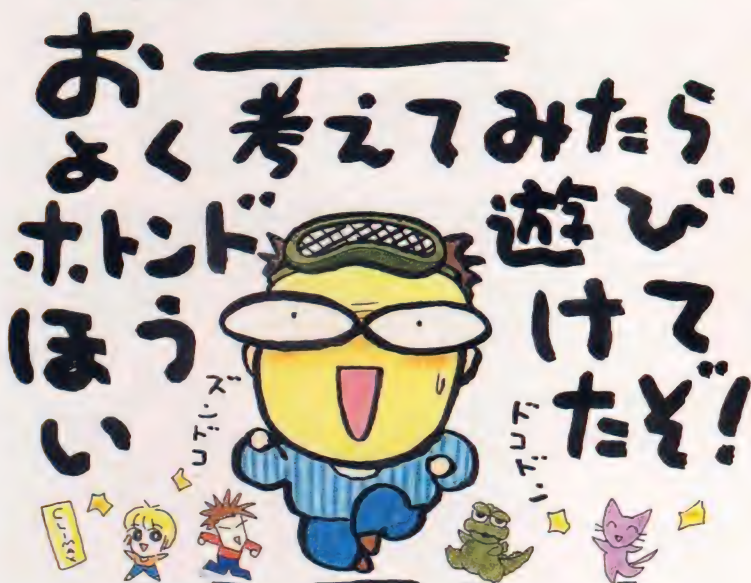 おー
よく考えてみたら
ホトンド遊び
ほうけて
いたぞ!
ズンドコ
CLIMAX